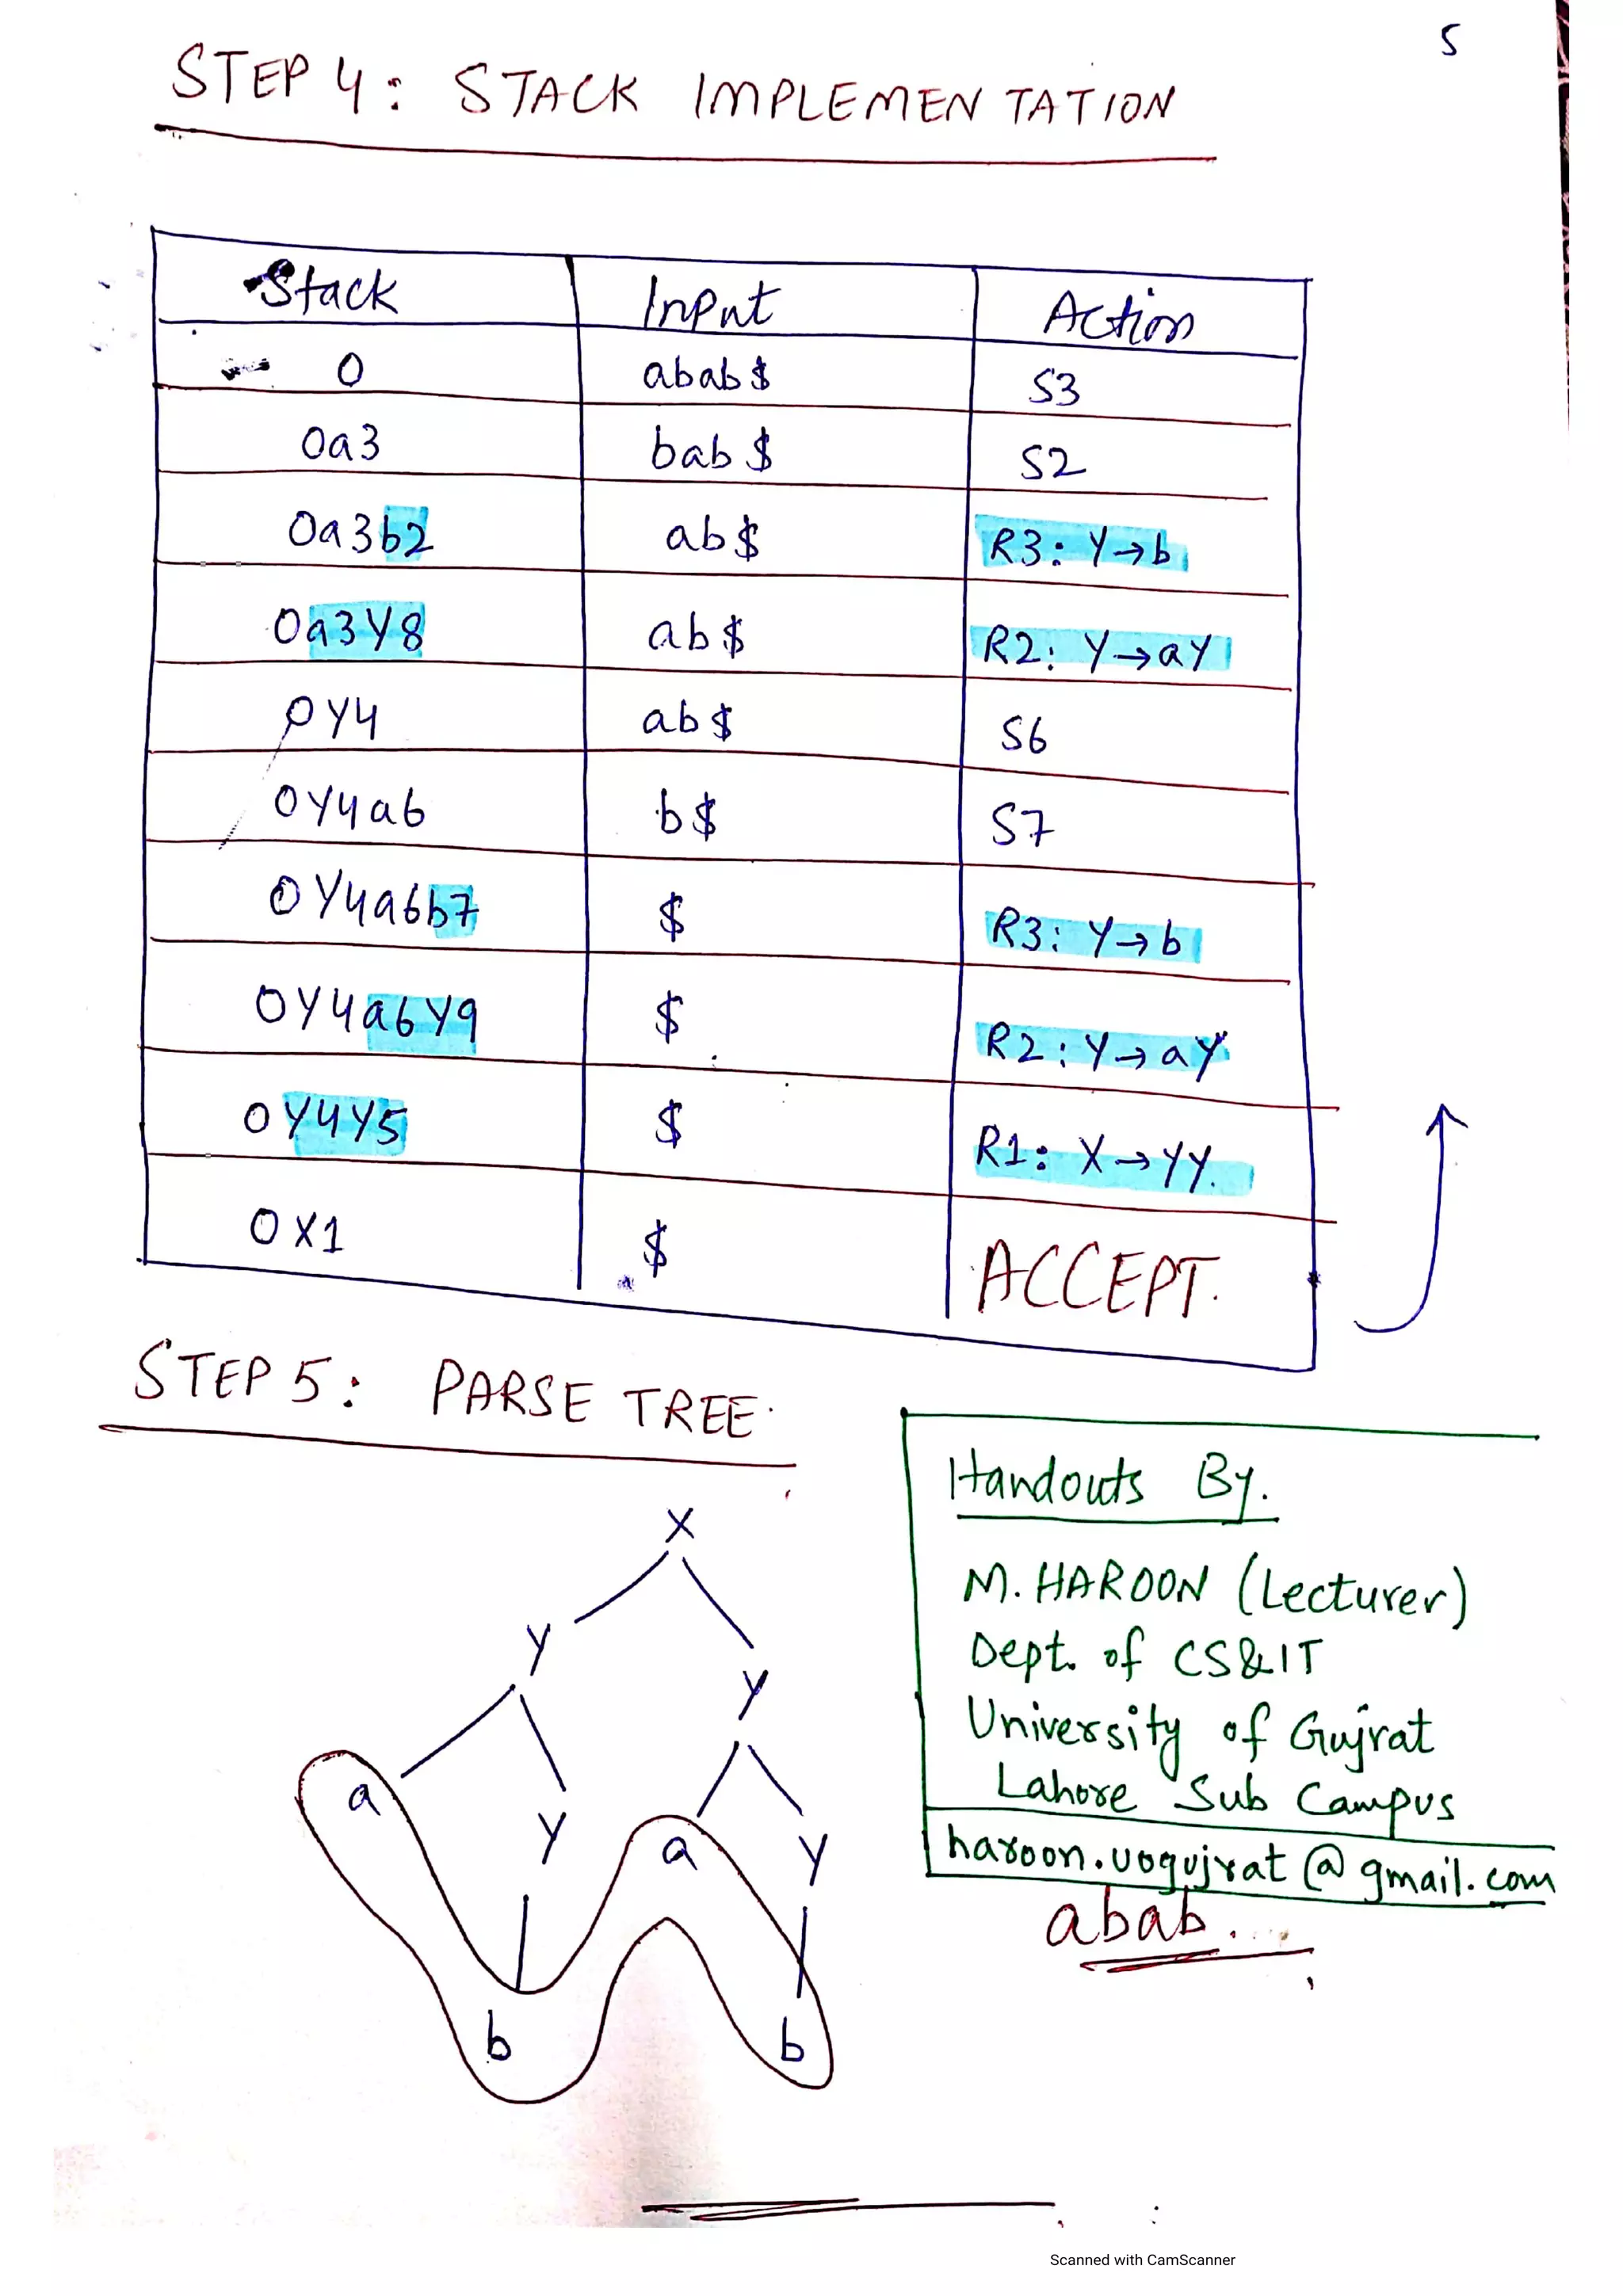 5
STEP 4: STACK IMPLEMENTATION
Stack Input Action
0 abab$ S3
0a3 bab$ S2
0a3b2 ab$ R3: Y→b
0a3Y8 ab$ R2: Y→aY
0Y4 ab$ S6
0Y4a6 b$ S7
0Y4a6b7 $ R3: Y→b
0Y4a6Y9 $ R2: Y→aY
0Y4Y5 $ R1: X→YY.
0X1 $ ACCEPT.
STEP 5: PARSE TREE.
X
Y Y
a Y a Y
b b
Handouts By.
M. HAROON (Lecturer)
Dept. of CS&IT
University of Gujrat
Lahore Sub Campus
haroon.uogujrat@gmail.com
abab....
Scanned with CamScanner